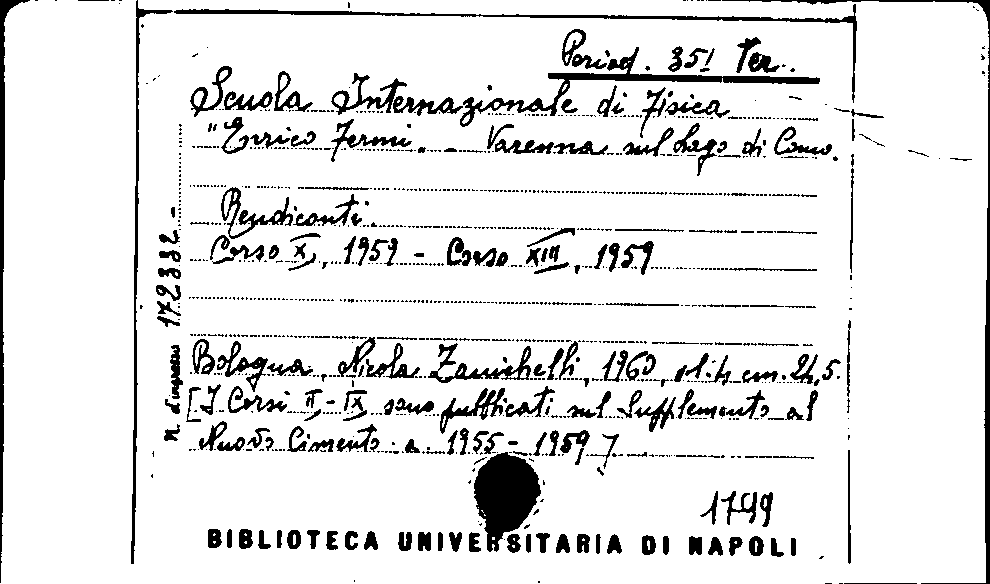 Period. 351 Ter.
Scuola Internazionale di Fisica
"Enrico Fermi. - Varenna sul Lago di Como.
Rendiconti.
Corso X, 1959 - Corso XIII, 1959
n. d'ingresso 172332 -
Bologna, Nicola Zanichelli, 1960, cm. 24,5.
[I Corsi II-IX sono pubblicati nel Supplemento al
Nuovo Cimento. a. 1955 - 1959]
1799
BIBLIOTECA UNIVERSITARIA DI NAPOLI